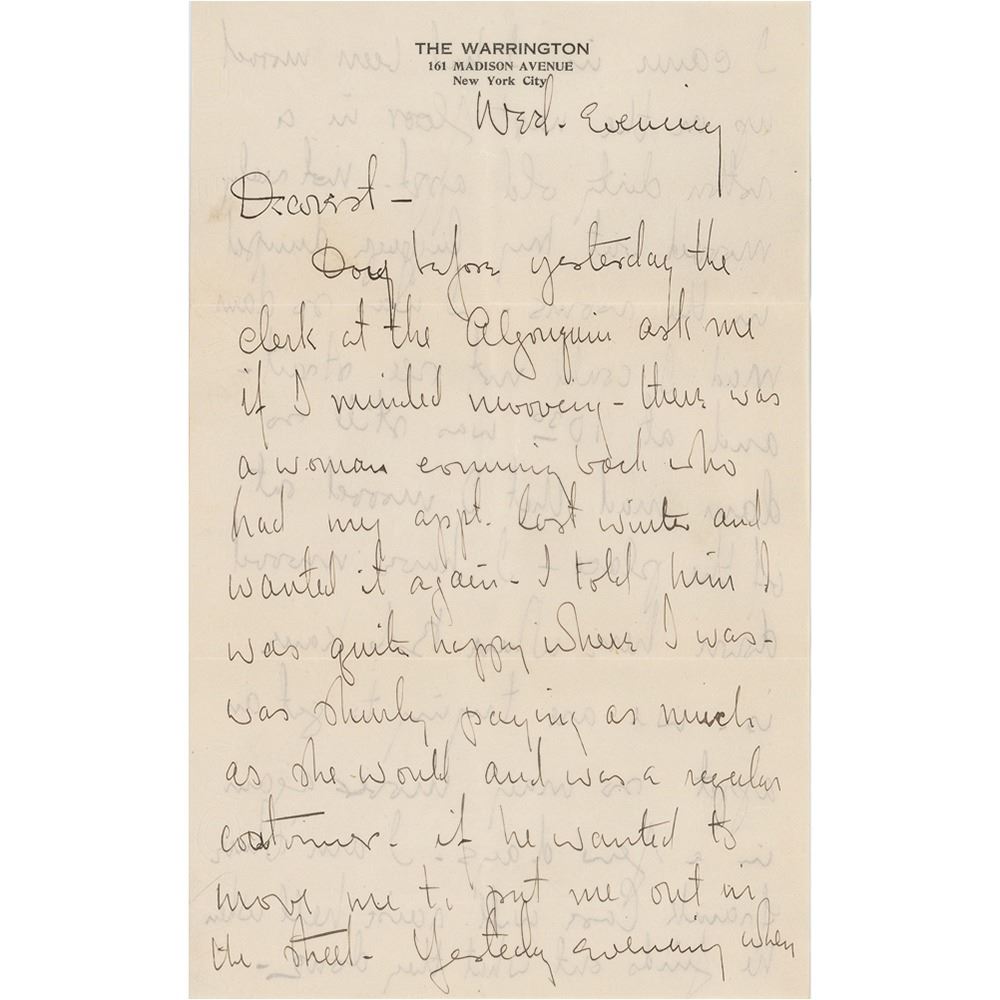 THE WARRINGTON
161 MADISON AVENUE
New York City
Wed. Evening
Dearest -
Day before yesterday the
clerk at the Algonquin ask me
if I minded mooveing - there was
a woman comming back who
had my appt. last winter and
wanted it again - I told him I
was quite happy where I was -
was shurly paying as much
as she would and was a regular
costimer - if he wanted to
move me to put me out in
the street - Yesteday evening when